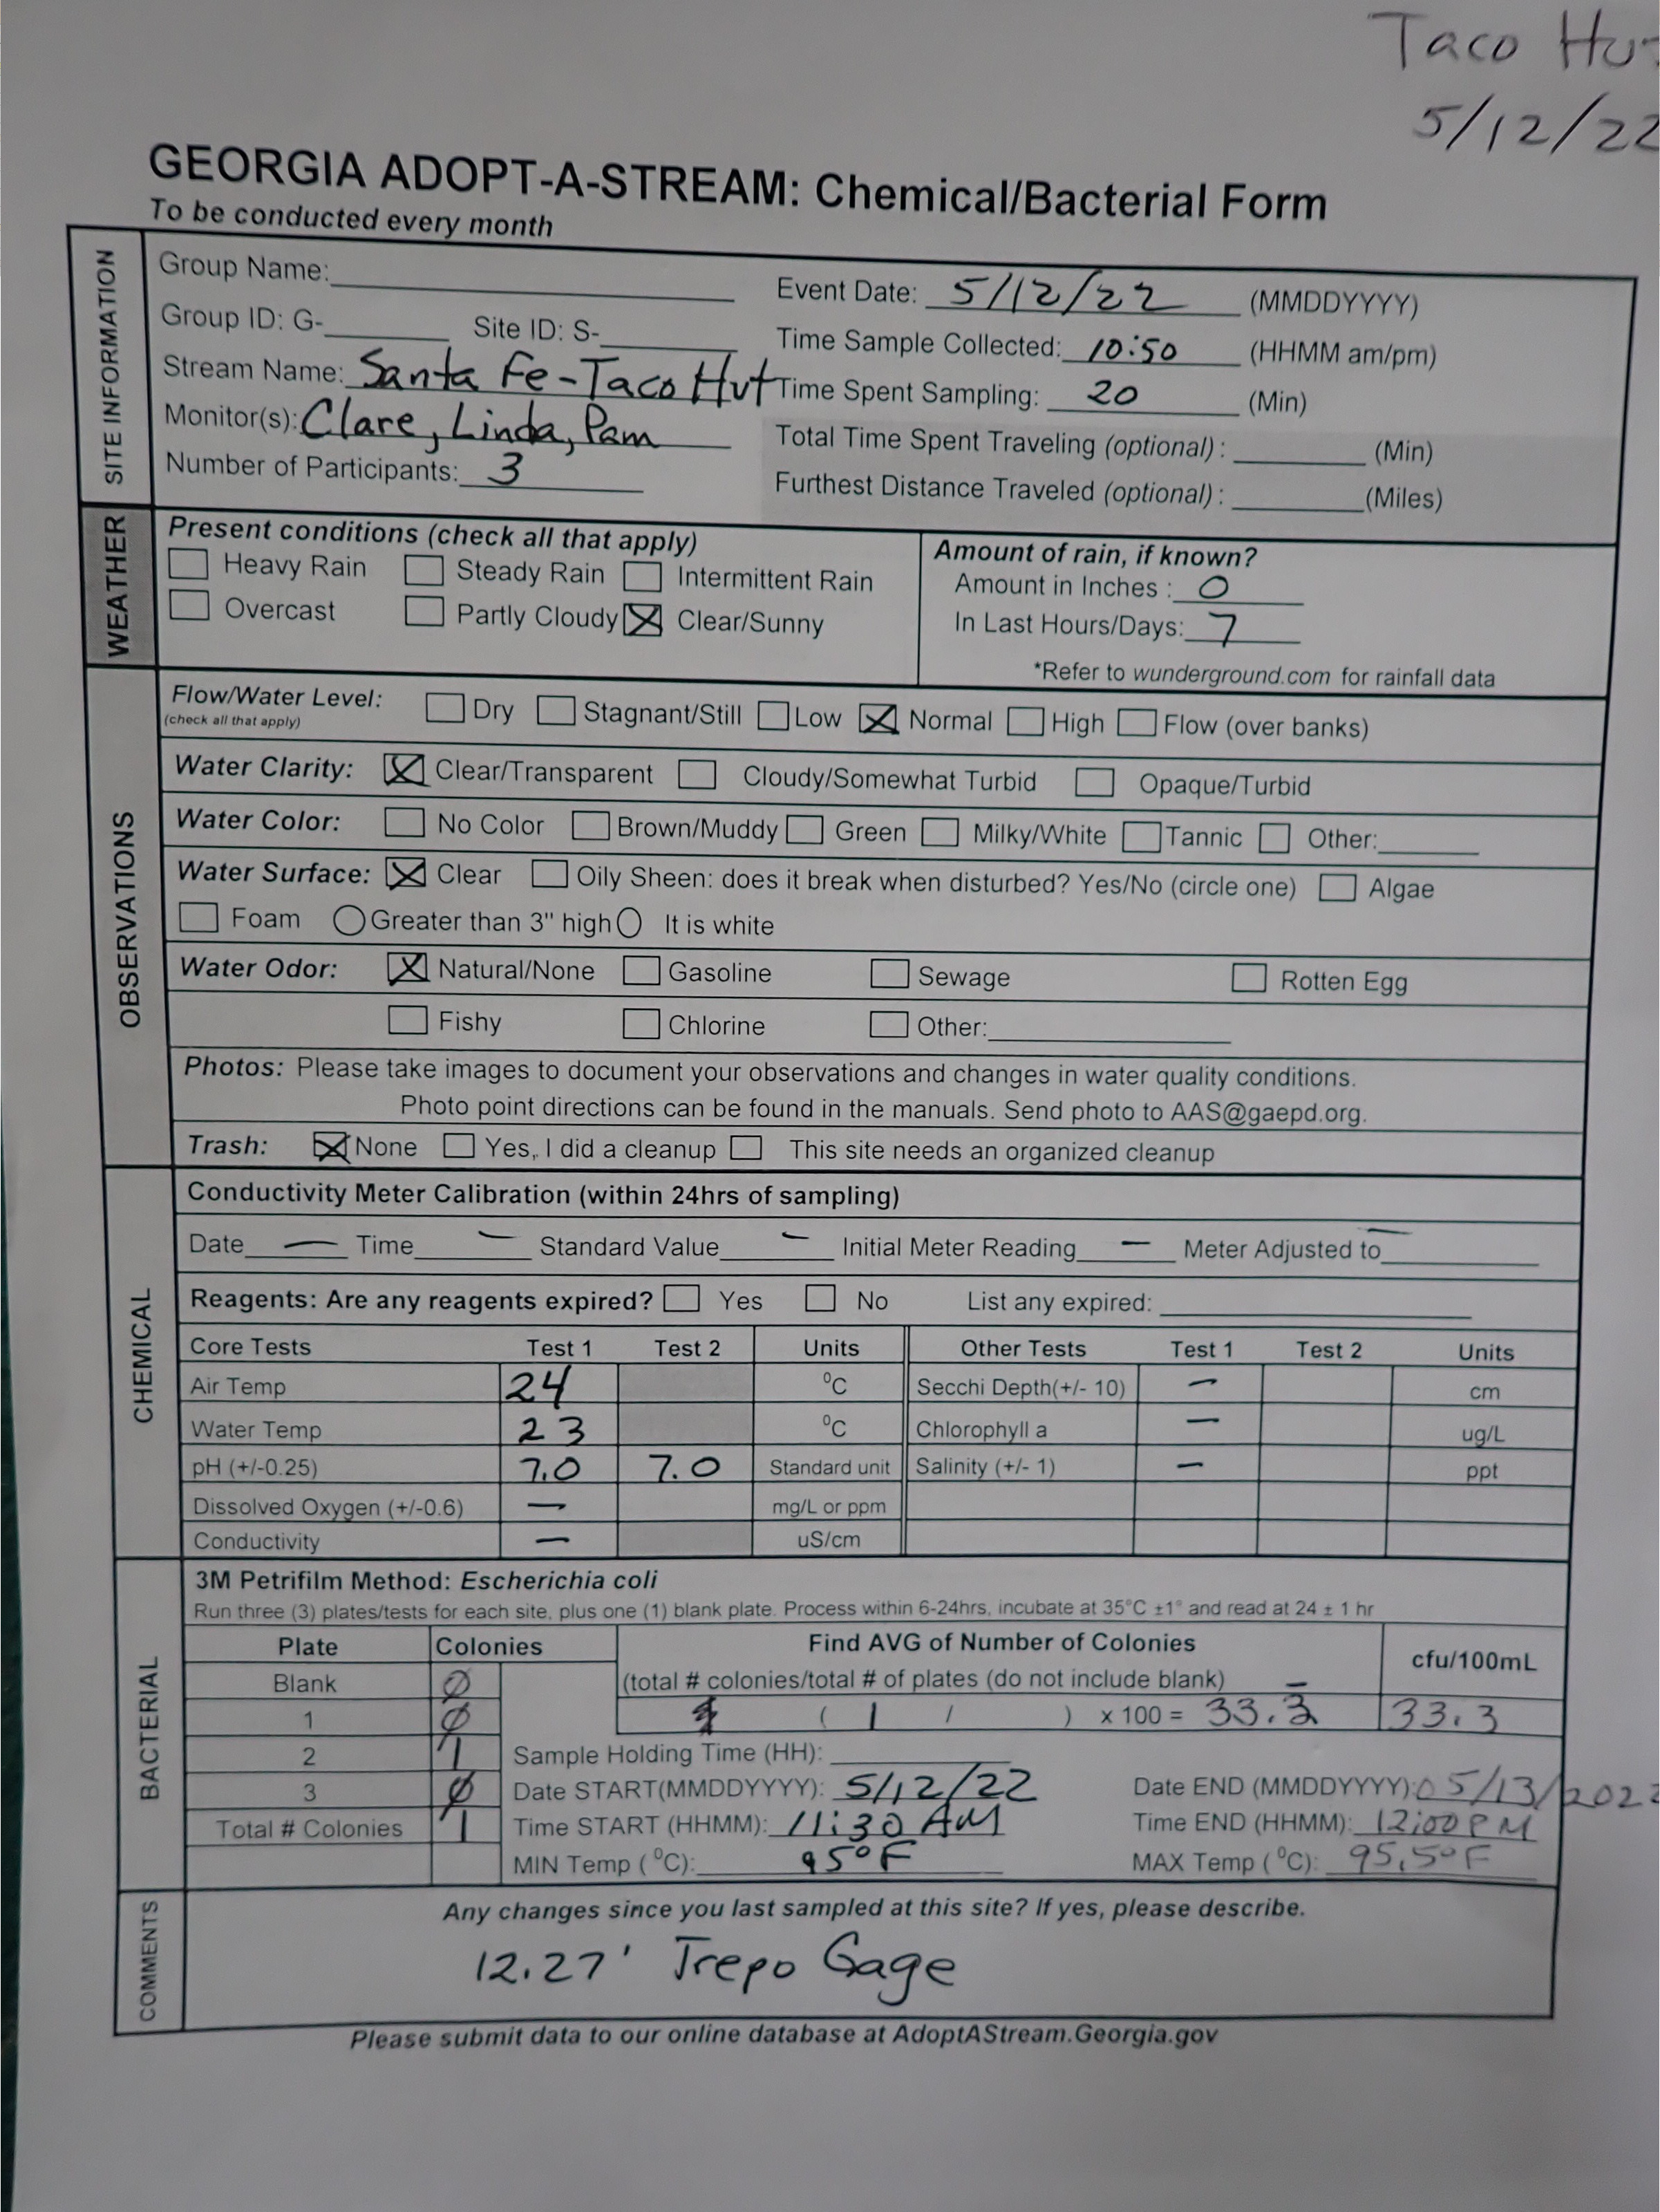 Taco Hu
5/12/22
GEORGIA ADOPT-A-STREAM: Chemical/Bacterial Form
To be conducted every month
SITE INFORMATION
Group Name:
Event Date: 5/12/22 (MMDDYYYY)
Group ID: G- Site ID: S-
Time Sample Collected: 10:50 (HHMM am/pm)
Stream Name: Santa Fe-Taco Hut
Time Spent Sampling: 20 (Min)
Monitor(s): Clare, Linda, Pam
Total Time Spent Traveling (optional): (Min)
Number of Participants: 3
Furthest Distance Traveled (optional): (Miles)
WEATHER
Present conditions (check all that apply)
Heavy Rain Steady Rain Intermittent Rain
Overcast Partly Cloudy Clear/Sunny
Amount of rain, if known?
Amount in Inches : 0
In Last Hours/Days: 7
*Refer to wunderground.com for rainfall data
OBSERVATIONS
Flow/Water Level: Dry Stagnant/Still Low Normal High Flow (over banks)
(check all that apply)
Water Clarity: Clear/Transparent Cloudy/Somewhat Turbid Opaque/Turbid
Water Color: No Color Brown/Muddy Green Milky/White Tannic Other:
Water Surface: Clear Oily Sheen: does it break when disturbed? Yes/No (circle one) Algae
Foam Greater than 3" high It is white
Water Odor: Natural/None Gasoline Sewage Rotten Egg
Fishy Chlorine Other:
Photos: Please take images to document your observations and changes in water quality conditions.
Photo point directions can be found in the manuals. Send photo to AAS@gaepd.org.
Trash: None Yes, I did a cleanup This site needs an organized cleanup
CHEMICAL
Conductivity Meter Calibration (within 24hrs of sampling)
Date — Time — Standard Value — Initial Meter Reading — Meter Adjusted to —
Reagents: Are any reagents expired? Yes No List any expired:
Core Tests Test 1 Test 2 Units Other Tests Test 1 Test 2 Units
Air Temp 24 °C Secchi Depth(+/- 10) — cm
Water Temp 23 °C Chlorophyll a — ug/L
pH (+/-0.25) 7.0 7.0 Standard unit Salinity (+/- 1) — ppt
Dissolved Oxygen (+/-0.6) — mg/L or ppm
Conductivity — uS/cm
BACTERIAL
3M Petrifilm Method: Escherichia coli
Run three (3) plates/tests for each site, plus one (1) blank plate. Process within 6-24hrs, incubate at 35°C ±1° and read at 24 ± 1 hr
Plate Colonies Find AVG of Number of Colonies cfu/100mL
Blank Ø (total # colonies/total # of plates (do not include blank)
1 Ø ( 1 / ) x 100 = 33.3̅ 33.3
2 1 Sample Holding Time (HH):
3 Ø Date START(MMDDYYYY): 5/12/22 Date END (MMDDYYYY): 05/13/202
Total # Colonies 1 Time START (HHMM): 11:30 AM Time END (HHMM): 12:00 PM
MIN Temp (°C): 95°F MAX Temp (°C): 95.5°F
COMMENTS
Any changes since you last sampled at this site? If yes, please describe.
12.27' Trepo Gage
Please submit data to our online database at AdoptAStream.Georgia.gov